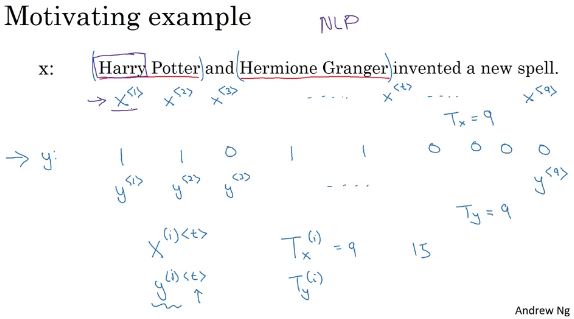 Motivating example NLP
x: (Harry Potter) and (Hermione Granger) invented a new spell.
→ x<1> x<2> x<3> ..... x<t> .... x<9>
Tx = 9
→ y: 1 1 0 1 1 0 0 0 0
y<1> y<2> y<3> .... y<9>
Ty = 9
X(i)<t> Tx(i) = 9 15
y(i)<t> Ty(i)
Andrew Ng